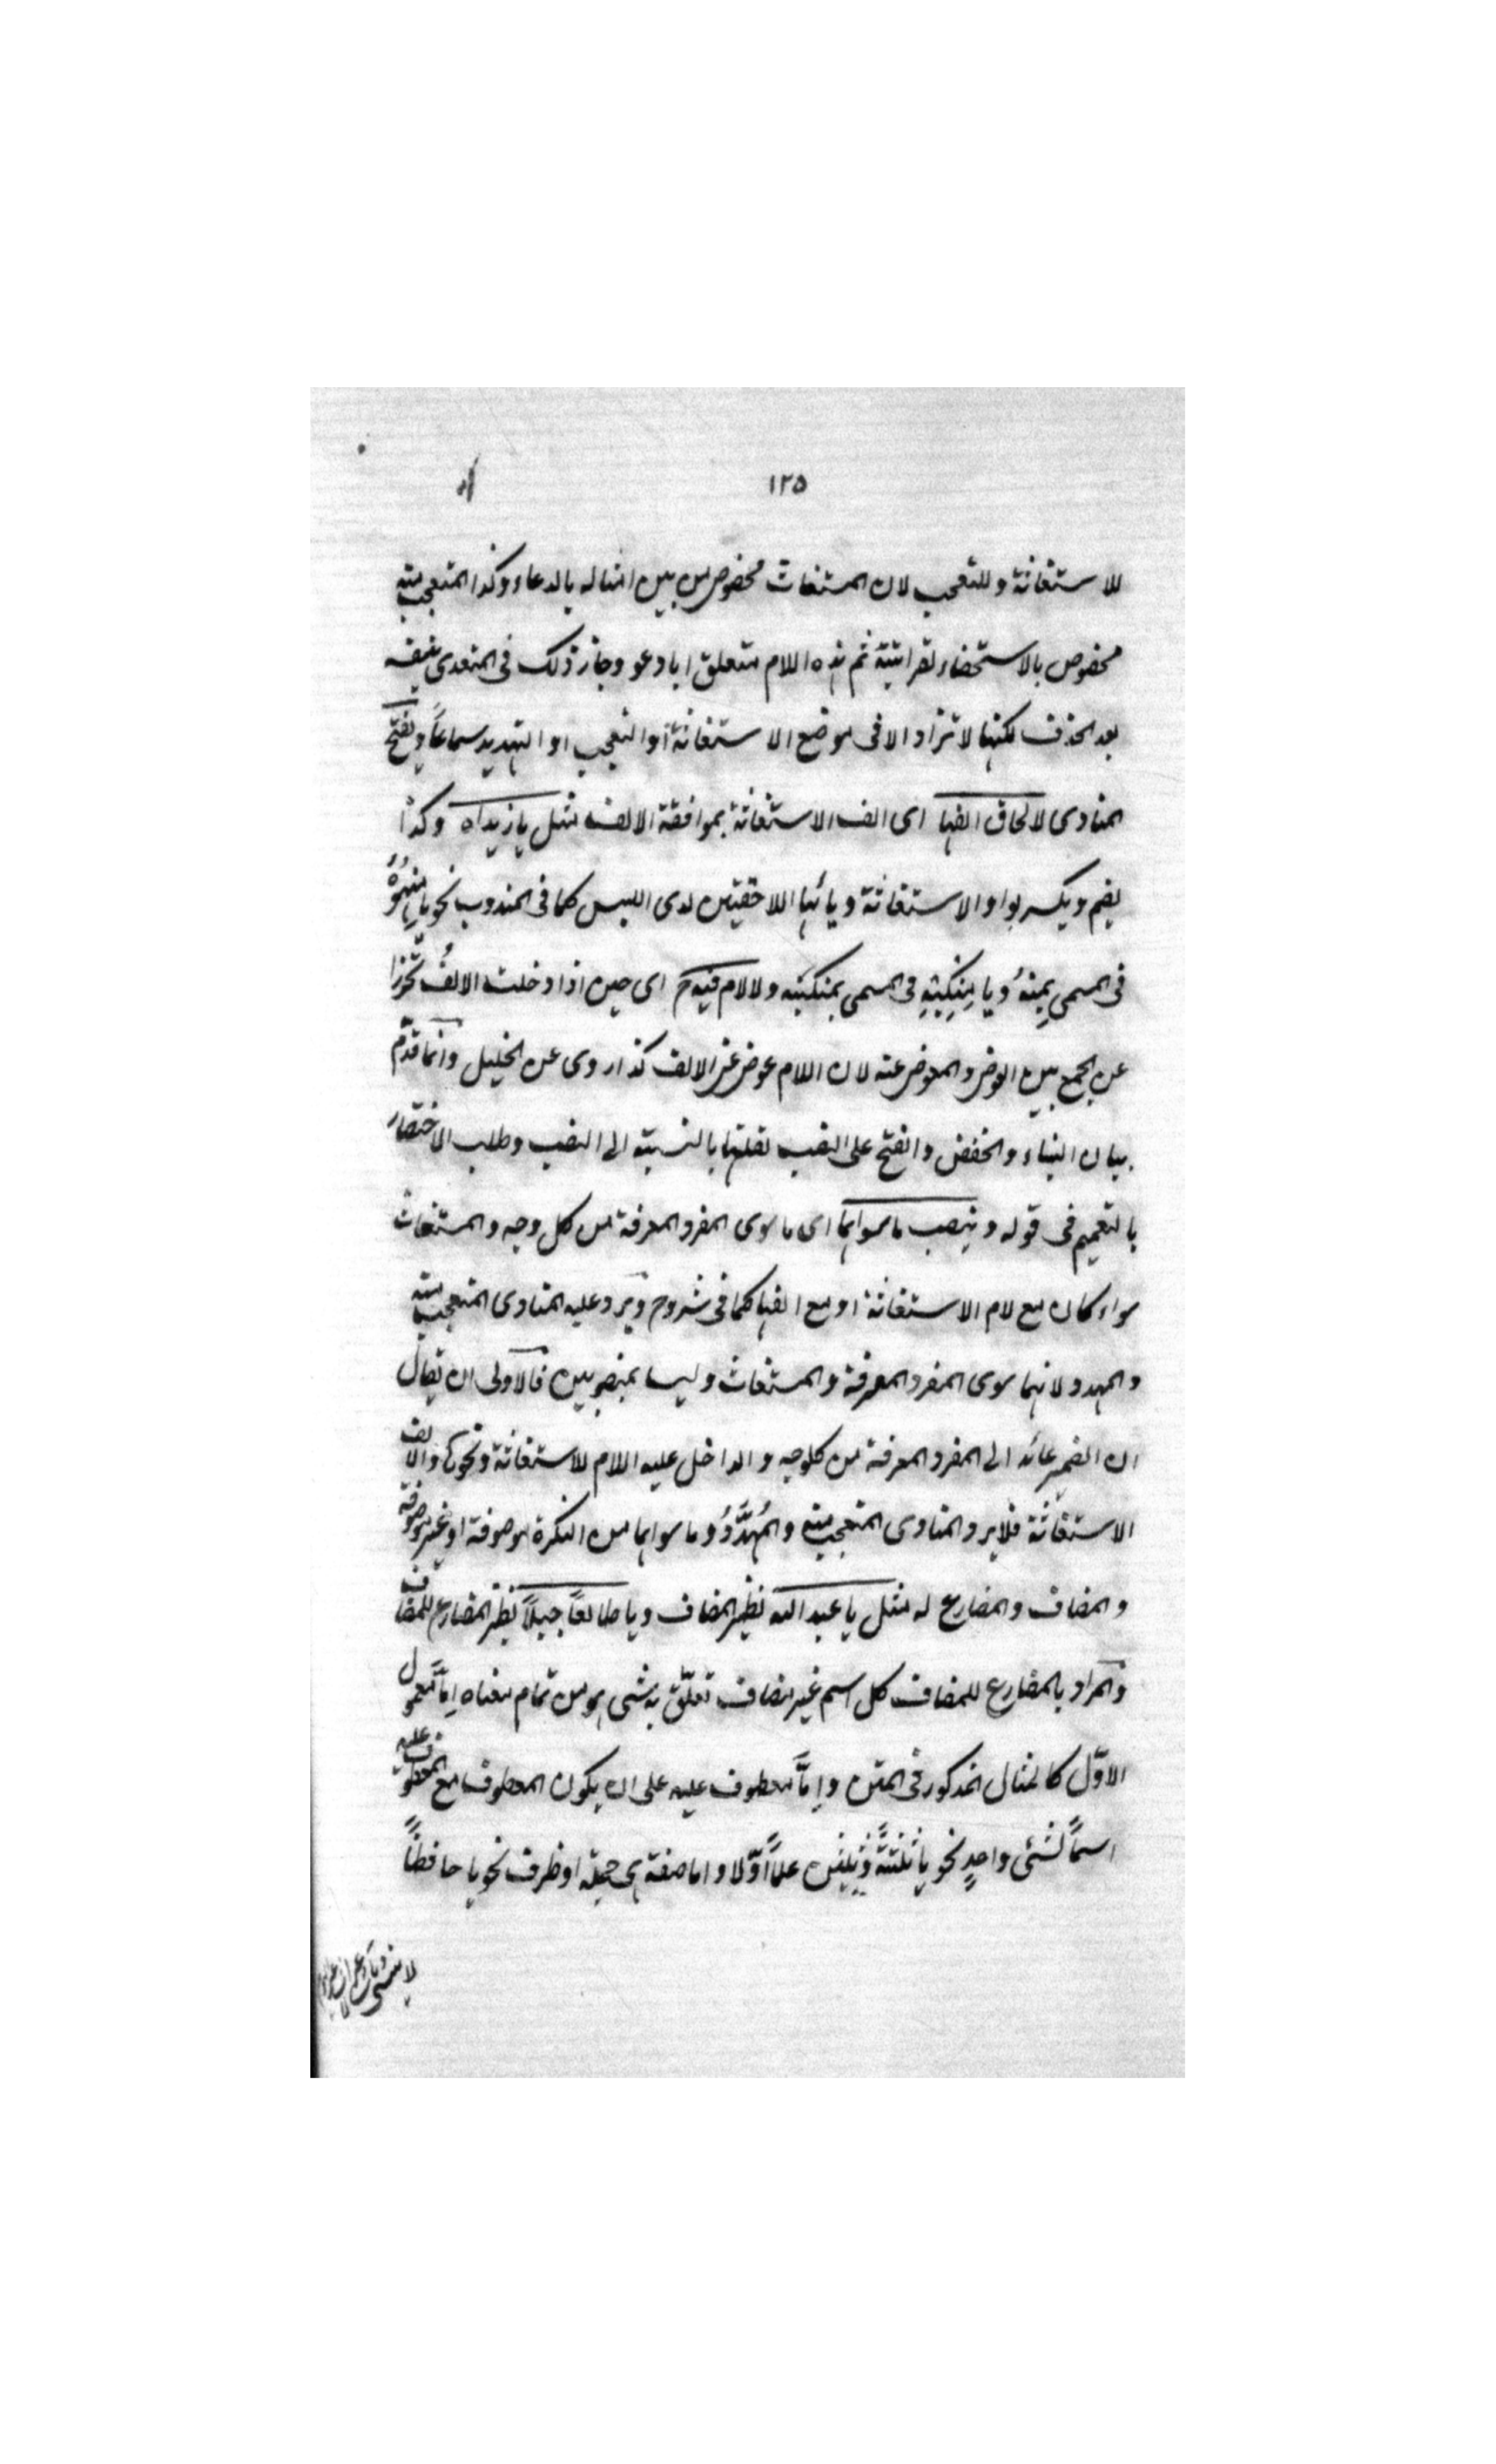 ١٢٥
للاستغاثة وللتعجب لان المستغاث مخصوص من بين امثاله بالدعاء وكذا المتعجب منه
مخصوص بالاستحضار لغرابته ثم هذه اللام متعلق بادعو وجاز ذلك فى المتعدى بنفسه
بعد الحذف لكنها لا تزاد الا فى موضع الاستغاثة أو التعجب او التهديد سماعاً ويفتح
المنادى لالحاق الفها اى الف الاستغاثة بموافقة الالف مثل يا زيداه وكذا
يضم ويكسر بواو الاستغاثة ويائها اللاحقتين لدى اللبس كما فى المندوب نحو يا منهُوْهُ
فى المسمى بمِنهُ ويا مِنكِيْهِ فى المسمى بمنك ولا لام فيه ح اى حين اذا دخلت الالفُ تحرّزا
عن الجمع بين العوض والمعوض عنه لان اللام عوض عن الالف كذا روى عن الخليل وانما قدّم
بيان البناء والخفض والفتح على النصب لقلتها بالنسبة الى النصب وطلب الاختصار
بالتعميم فى قوله وينصب ما سواهما اى ما سوى المفرد المعرفة من كل وجه والمستغاث
سواء كان مع لام الاستغاثة او مع الفها كما فى شروح ويرد عليه المنادى المتعجب منه
والمهدد لانهما سوى المفرد المعرفة والمستغاث وليسا بمنصوبين فالاولى ان يقال
ان الضمير عائد الى المفرد المعرفة من كل وجه والداخل عليه اللام للاستغاثة ونحوها والالف
الاستغاثة فلا يرد المنادى المتعجب منه والمُهدَّدُ وما سواهما من النكرة موصوفة او غير موصوفة
والمضاف والمضارع له مثل يا عبد الله نظير المضاف ويا طالعاً جبلاً نظير المضارع للمضاف
والمراد بالمضارع للمضاف كل اسم غير مضاف تعلّق به شئ هو من تمام معناه إمّا معمول
الاوّل كالمثال المذكور فى المتن وإمّا معطوف عليه على ان يكون المعطوف مع المعطوف عليه
اسماً لشئ واحدٍ نحو يا ثلثةً وثلثين علماً أوّلا واما صفة هى جملة او ظرف نحو يا حافظاً
لا ينسى